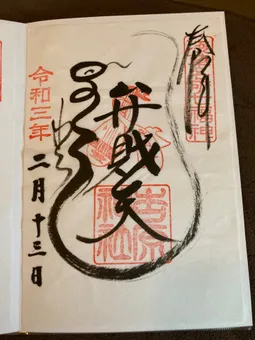 奉拝
弁財天
吉原
神社
令和三年
二月十三日